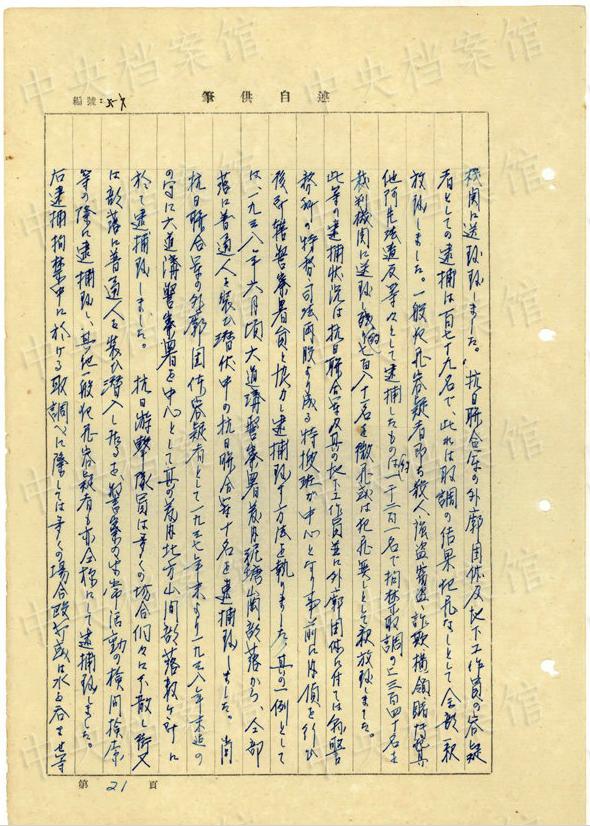 述自供筆
編號:
機関に送致致しました。抗日聯合軍の外廓団体及地下工作員の容疑
者としての逮捕は百七十九名で、此れは取調の結果犯罪なしとして全部釈
放致しました。一般犯罪容疑者即ち殺人、強盗、窃盗、詐欺横領、賭博、其
他阿片法違反等々として逮捕したものは約一千二百一名で拘禁取調の上三百四十名を
裁判機関に送致、残約七百八十名を微罪或は犯罪無しとして釈放致しました。
此等の逮捕状況は抗日聯合軍及其の地下工作員並に外廓団体に付ては
務科の特務、司法両股より成る特捜班が中心となり事前に内偵を行ひ
後所轄警察署員と協力し逮捕致す方法を執りました。其の一例として
は、一九三八年六月頃大道溝警察署管内 塘崗部落から、全部
落に普通人を装ひ潜伏中の抗日聯合軍十名を逮捕致しました。尚
抗日聯合軍の外廓団体容疑者として一九三七年末より一九三八年末迄の
間に大道溝警察署を中心として其の管内北方山間部落数ヶ村に
於て逮捕致しました。抗日游撃隊員は多くの場合個々に下散し街又
は部落に普通人を装ひ潜入し居るを、警察の日常活動の検問検索
等の際に逮捕致し、其他一般犯罪容疑者も亦仝様にして逮捕致しました。
右逮捕拘禁中に於ける取調べに際しては多くの場合殴打或は水を呑ませ等
第 21 頁
中央档案馆